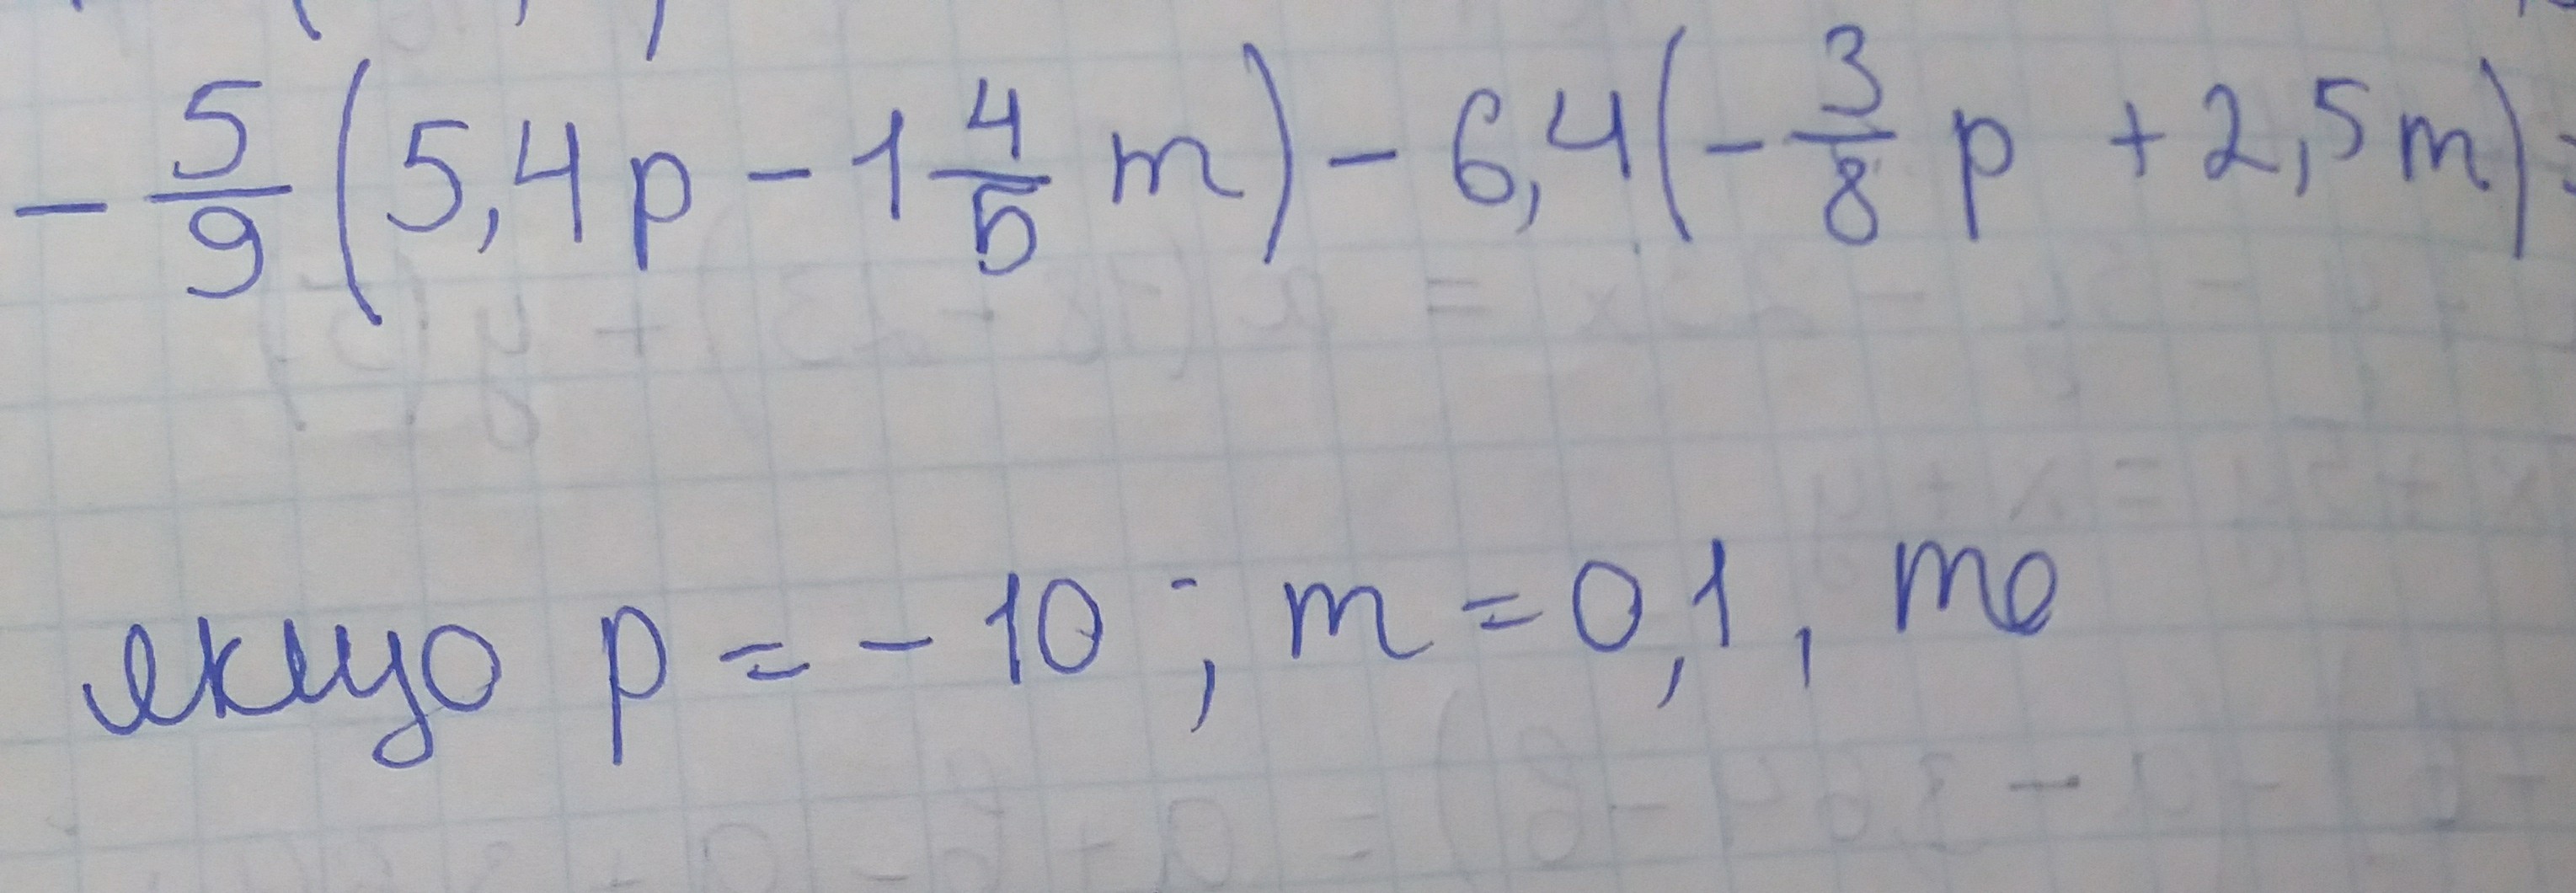 -5/9(5,4p - 1 4/5 m) - 6,4(-3/8 p + 2,5m) =
якщо p = -10 ; m = 0,1, то